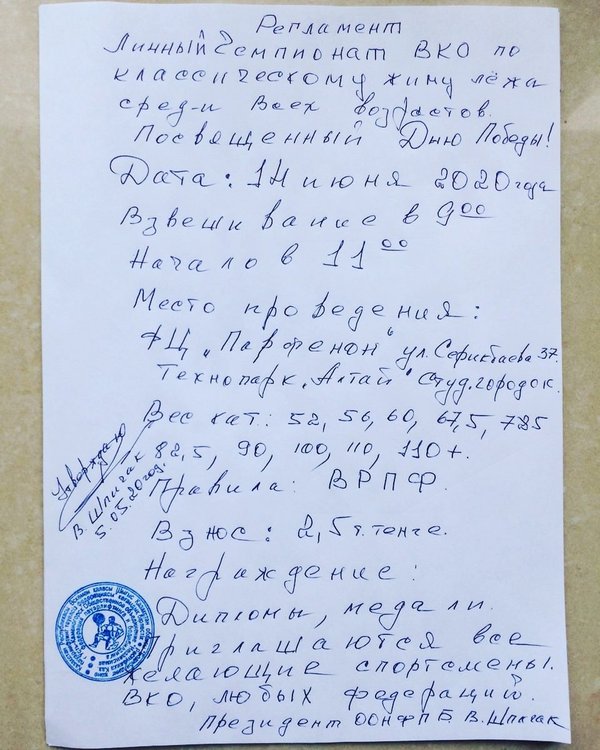 Регламент
Личный Чемпионат ВКО по
классическому жиму лёжа
среди всех возрастов.
Посвященный Дню Победы!
Дата: 14 июня 2020 года
Взвешивание в 9⁰⁰
Начало в 11⁰⁰
Место проведения:
ФЦ „Парфенон“ ул. Сериктаева 37.
Технопарк „Алтай“ студ. городок.
Вес кат: 52, 56, 60, 67,5, 785
82,5, 90, 100, 110, 110+.
Правила: ВРПФ.
Взнос: 2,5 т. тенге.
Награждение:
Дипломы, медали.
Приглашаются все
желающие спортсмены.
ВКО, любых федераций.
Президент ООНФПБ В. Шпигак
Утверждаю
В. Шпигак
5.05.20 год.